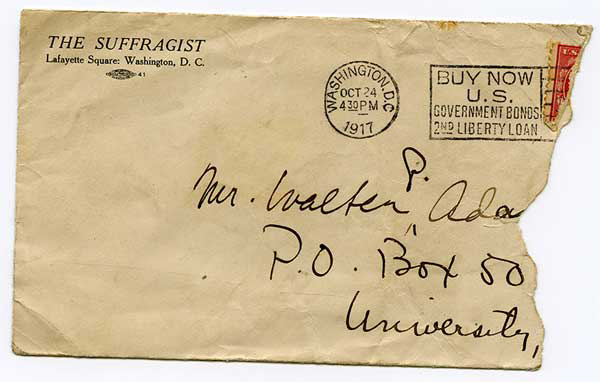 THE SUFFRAGIST
Lafayette Square: Washington, D. C.
41
WASHINGTON, D.C.
OCT 24
4 30 PM
1917
BUY NOW
U.S.
GOVERNMENT BONDS
2ND LIBERTY LOAN
U.S.
P.
Mr. Walter Ada
P.O. Box 50
University,